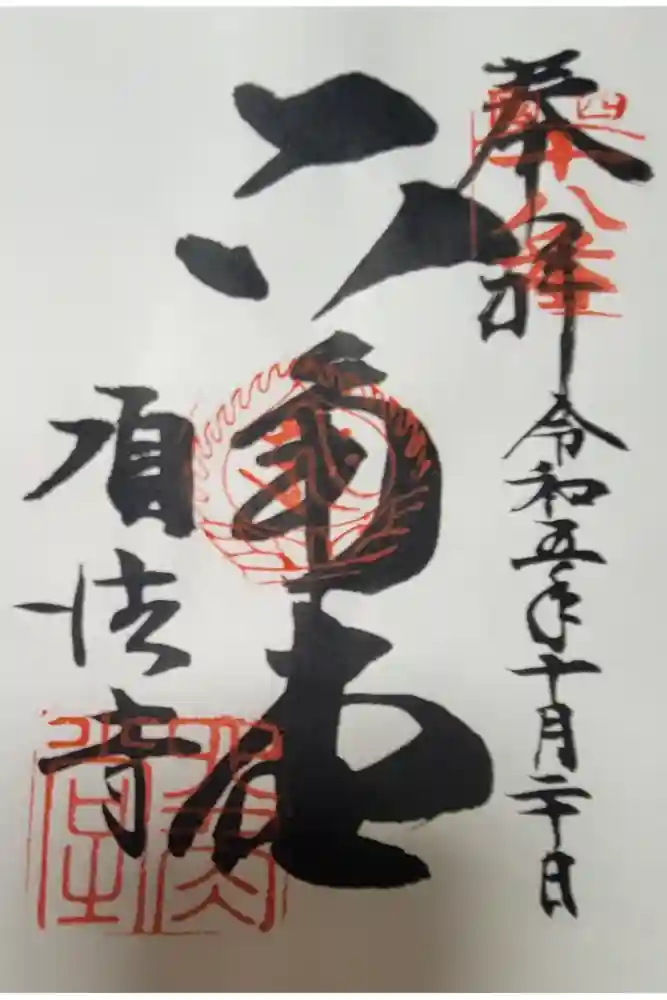 奉拝 令和五年十月二十日
西国十八番
六角堂
頂法寺